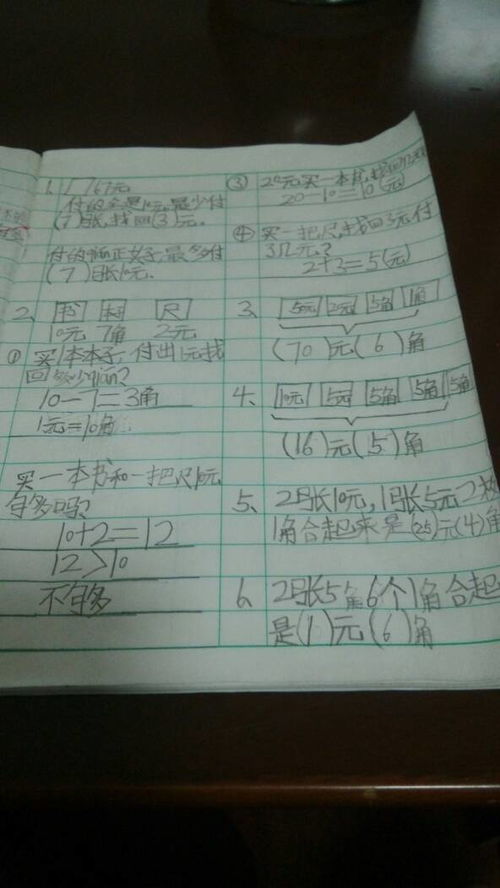 1. 67元
付的全是10元,最少付
(7)张,找回(3)元.
付的恰正好,最多付
(7)张10元.
2. 书 本 尺
10元 7角 2元
① 买1本本子,付出1元找
回多少
10-7=3角
1元=10角
买一本书和一把尺10元
够吗?
10+2=12
12>10
不够
③ 20元买一本书,找回几元
20-10=10(元)
④ 买一把尺,找回3元,付
了几元?
2+3=5(元)
3. 50元 20元 5角 1角
(70)元(6)角
4. 10元 5元 5角 5角 5角
(16)元(5)角
5、2张10元,1张5元2
1角合起来是(25)元(4)角
6、2张5角6个1角合起
是(1)元(6)角